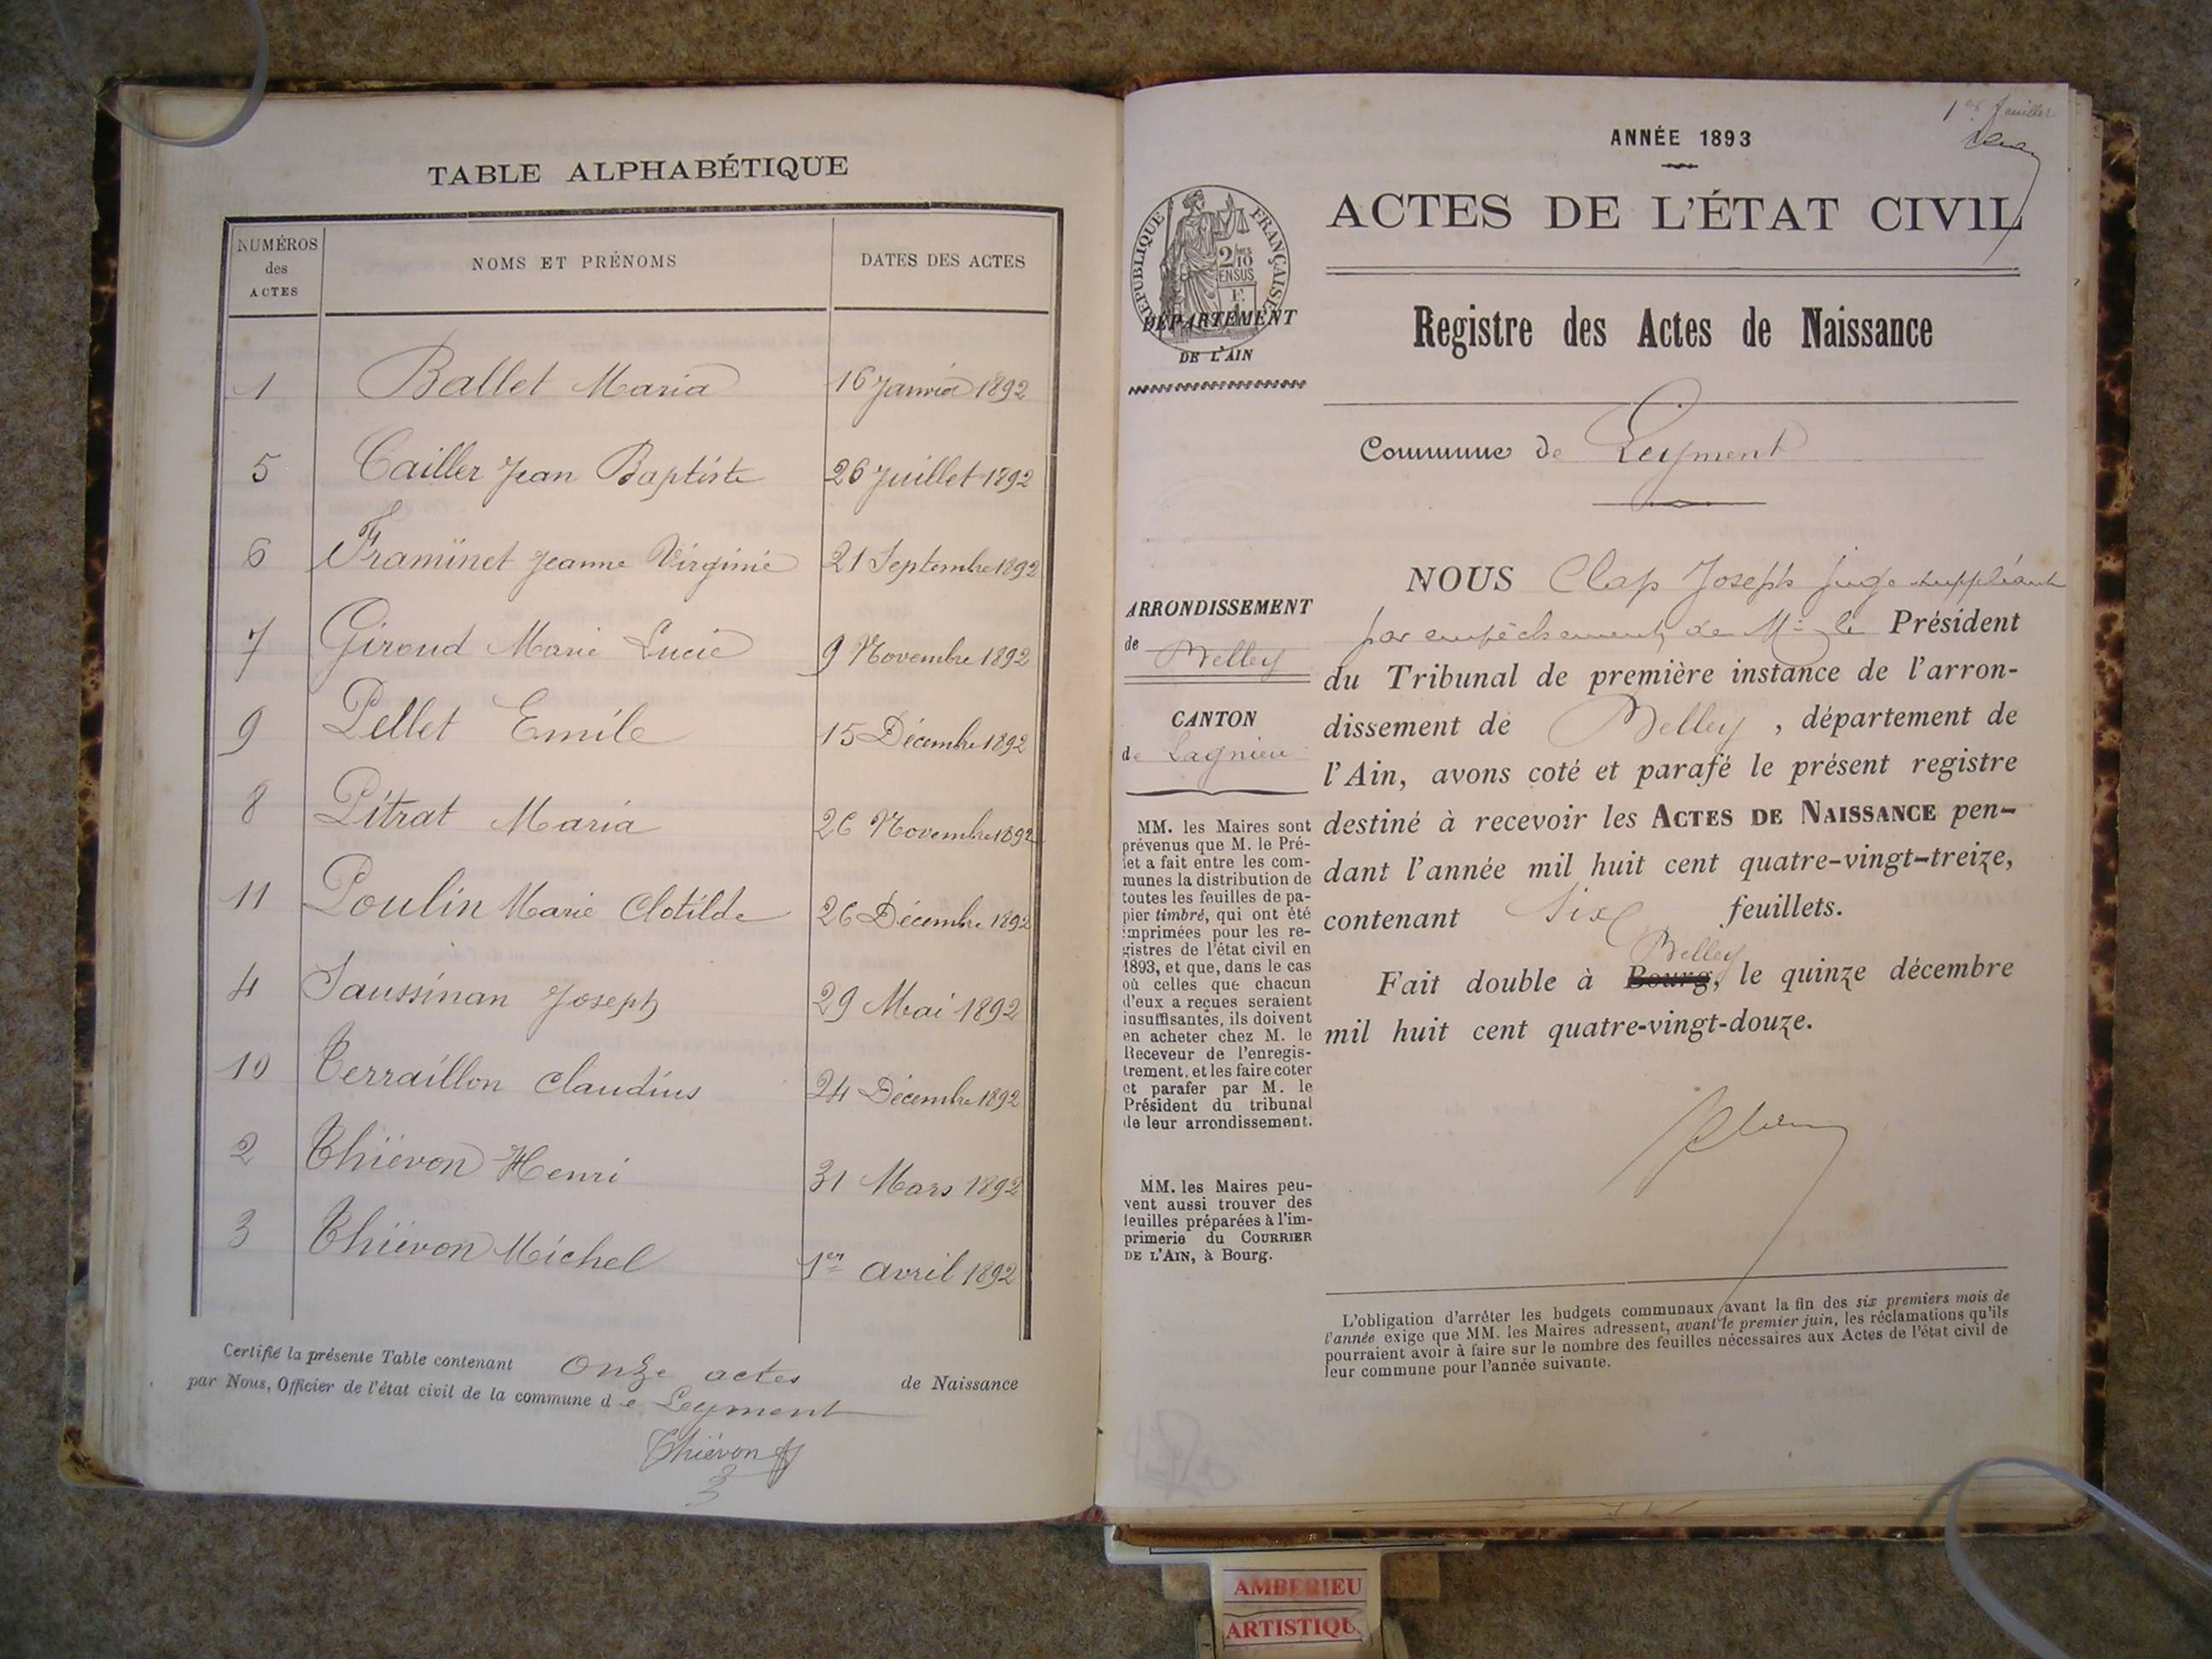 TABLE ALPHABÉTIQUE
NUMÉROS des ACTES NOMS ET PRÉNOMS DATES DES ACTES
1 Ballet Maria 16 Janvier 1892
5 Cailler Jean Baptiste 26 Juillet 1892
6 Framinet Jeanne Virginie 21 Septembre 1892
7 Giroud Marie Lucie 9 Novembre 1892
9 Pellet Emile 15 Décembre 1892
8 Pitrat Maria 26 Novembre 1892
11 Poulin Marie Clotilde 26 Décembre 1892
4 Saussinan Joseph 29 Mai 1892
10 Terraillon Claudius 24 Décembre 1892
2 Thiévon Henri 31 Mars 1892
3 Thiévon Michel 1er avril 1892
Certifié la présente Table contenant onze actes de Naissance
par Nous, Officier de l'état civil de la commune de Leyment
Thiévon
1er feuillet
ANNÉE 1893
ACTES DE L'ÉTAT CIVIL
RÉPUBLIQUE FRANÇAISE
2 10
EN SUS
DÉPARTEMENT
DE L'AIN
Registre des Actes de Naissance
Commune de Leyment
ARRONDISSEMENT
de Belley
CANTON
de Lagnieu
MM. les Maires sont
prévenus que M. le Pré-
fet a fait entre les com-
munes la distribution de
toutes les feuilles de pa-
pier timbré, qui ont été
imprimées pour les re-
gistres de l'état civil en
1893, et que, dans le cas
où celles que chacun
d'eux a reçues seraient
insuffisantes, ils doivent
en acheter chez M. le
Receveur de l'enregis-
trement, et les faire coter
et parafer par M. le
Président du tribunal
de leur arrondissement.
MM. les Maires peu-
vent aussi trouver des
feuilles préparées à l'im-
primerie du COURRIER
DE L'AIN, à Bourg.
NOUS Clap Joseph juge suppléant
par empêchement de Mr le Président
du Tribunal de première instance de l'arron-
dissement de Belley, département de
l'Ain, avons coté et parafé le présent registre
destiné à recevoir les ACTES DE NAISSANCE pen-
dant l'année mil huit cent quatre-vingt-treize,
contenant six feuillets.
Belley
Fait double à Bourg, le quinze décembre
mil huit cent quatre-vingt-douze.
L'obligation d'arrêter les budgets communaux avant la fin des six premiers mois de
l'année exige que MM. les Maires adressent, avant le premier juin, les réclamations qu'ils
pourraient avoir à faire sur le nombre des feuilles nécessaires aux Actes de l'état civil de
leur commune pour l'année suivante.
AMBERIEU
ARTISTIQU